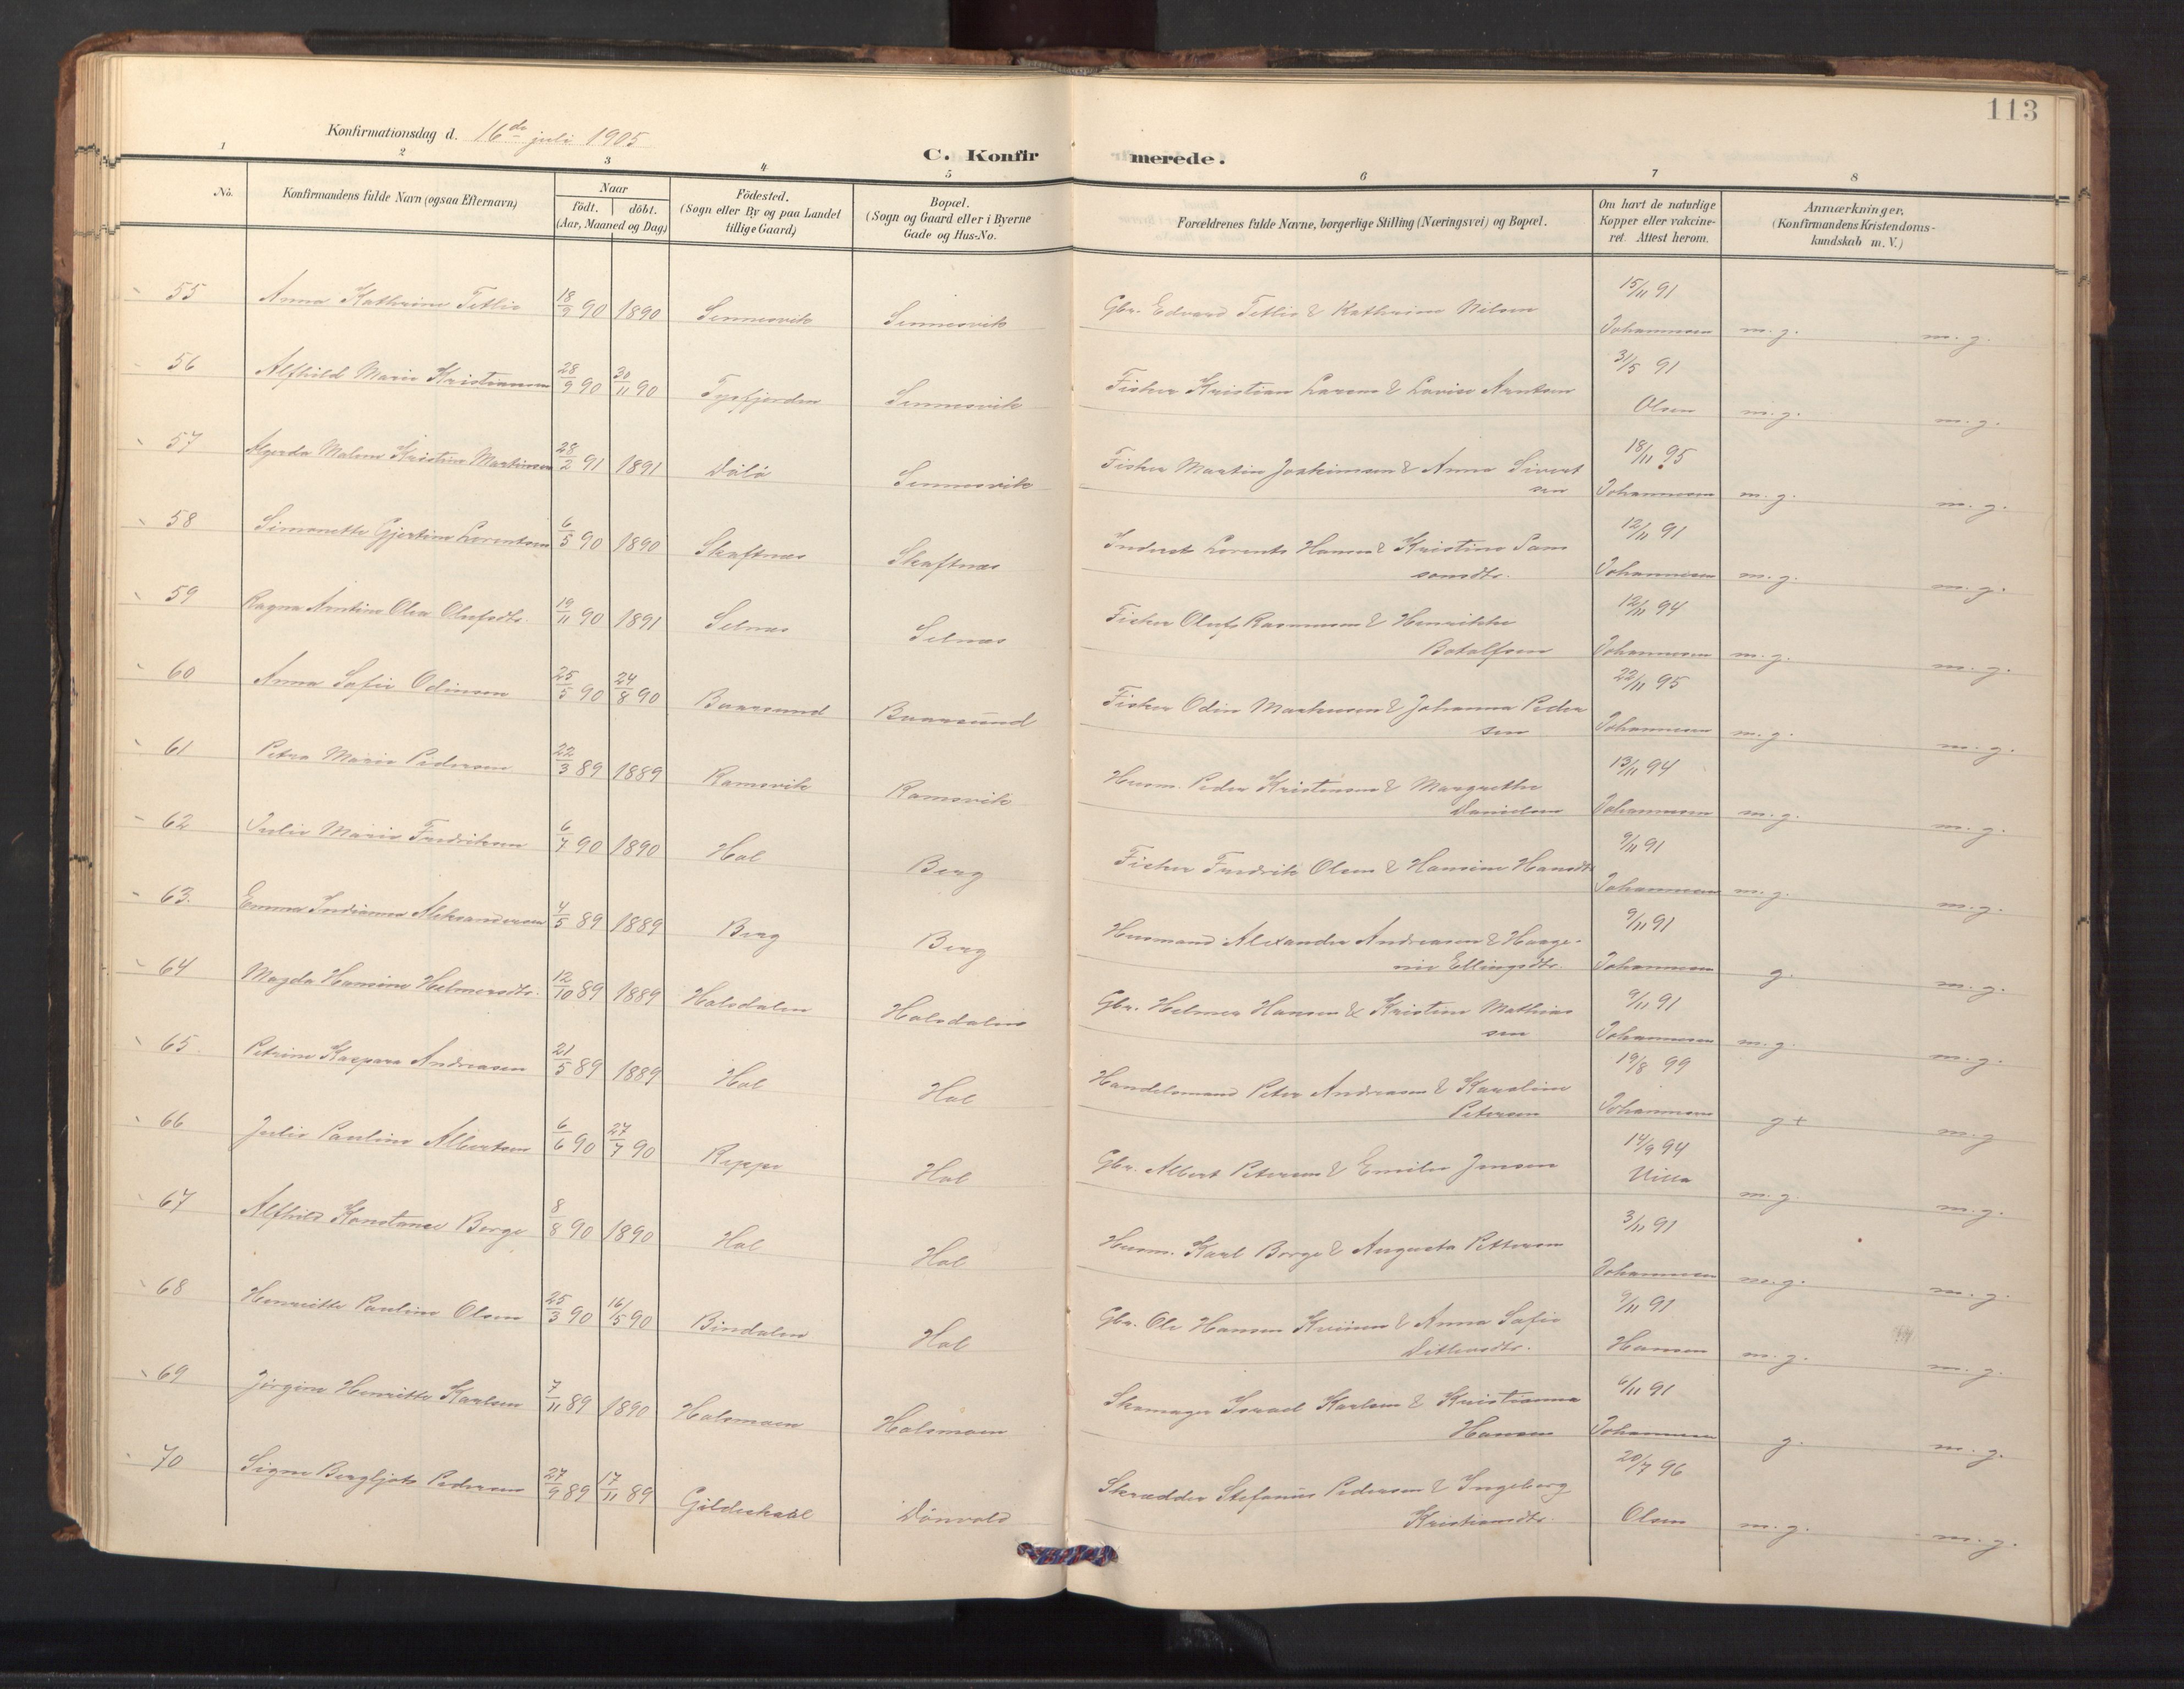 113
Konfirmationsdag d. 16de juli 1905
C. Konfirmerede.
1 2 3 4 5 6 7 8
No.
Konfirmandens fulde Navn (ogsaa Efternavn)
Naar
født. døbt.
(Aar, Maaned og Dag)
Födested.
(Sogn eller By og paa Landet
tillige Gaard)
Bopæl.
(Sogn og Gaard eller i Byerne
Gade og Hus-No.
Forældrenes fulde Navne, borgerlige Stilling (Næringsvei) og Bopæl.
Om havt de naturlige
Kopper eller vakcine-
ret. Attest herom.
Anmærkninger,
(Konfirmandens Kristendoms-
kundskab m. V.)
55 Anna Kathrine Tetlie 18/9 90 1890 Sennesvik Sennesvik Gbr. Edvard Tetlie & Kathrine Nilsen 15/11 91
Johannesen m. g. m. g.
56 Alfhild Marie Kristiansen 28/9 90 30/11 90 Tysfjorden Sennesvik Fisker Kristian Larsen & Lovise Arntsen 31/5 91
Olsen m. g. m. g.
57 Malene Kristine Martinsen 28/2 91 1891 Sennesvik Fisker Martin Joakimsen & Anna Sivert 18/11 95
sen Johannesen m. g. m. g.
58 Simonette Gjertine Lorentsen 6/5 90 1890 Skaftnes Skaftnes Inderst Lorents Hansen & Kristine Sam 12/11 91
sonsdtr. Johannesen m. g. m. g.
59 Ragna Arntine Olea Olufsdtr. 19/11 90 1891 Selnes Selnes Fisker Oluf Rasmussen & Henrikke 12/11 94
Botolfsen Johannesen m. g. m. g.
60 Anna Sofie Odinsen 25/5 90 24/8 90 Buarsund Buarsund Fisker Odin Markussen & Johanna Peder 22/11 95
sen Johannesen m. g. m. g.
61 Petra Marie Pedersen 22/3 89 1889 Ramsvik Ramsvik Husm. Peder Kristensen & Margrethe 13/11 94
Danielsen Johannesen m. g. m. g.
62 Julie Marie Fredriksen 6/7 90 1890 Hol Berg Fisker Fredrik Olsen & Hansine Hansdtr 9/11 91
Johannesen m. g. m. g.
63. Emma Indianna Aleksandersen 4/5 89 1889 Berg Berg Husmand Alexander Andreasen & Hange-
nie Ellingsdtr. 9/11 91 Johannesen g. m. g.
64 Magda Hansine Helmersdtr. 12/10 89 1889 Holsdalen Holsdalen Gbr. Helmer Hansen & Kristine Mathias 9/11 91
sen Johannesen m. g. m. g.
65. Petrine Kaspara Andreasen 21/5 89 1889 Hol Hol Handelsmand Peter Andreasen & Karoline 19/8 99
Petersen Johannesen g+ m. g
66 Julie Pauline Albertsen 6/6 90 27/7 90 Reppe Hol Gbr. Albert Petersen & Emilie Jensen 14/9 94
m. g. m. g.
67 Alfhild Konstanse Borge 8/8 90 1890 Hol Hol Husm. Karl Borge & Augusta Pettersen 3/11 91
Johannesen m. g. m. g.
68 Henriette Pauline Olsen 25/3 90 16/5 90 Bindalen Hol Gbr. Ole Hansen & Anna Sofie 9/11 91
Ditlevsdtr. Hansen m. g. m. g.
69 Jørgine Henriette Karlsen 7/11 89 1890 Holsmoen Holsmoen Skomager Israel Karlsen & Kristianna 6/11 91
Hansen Johannesen g. m. g.
70 Signe Bergljot Pedersen 27/9 89 17/11 89 Gildeskaal Dönvold Skrædder Stefanus Pedersen & Ingeborg 20/7 96
Kristiansdtr. Olsen m. g. m. g.